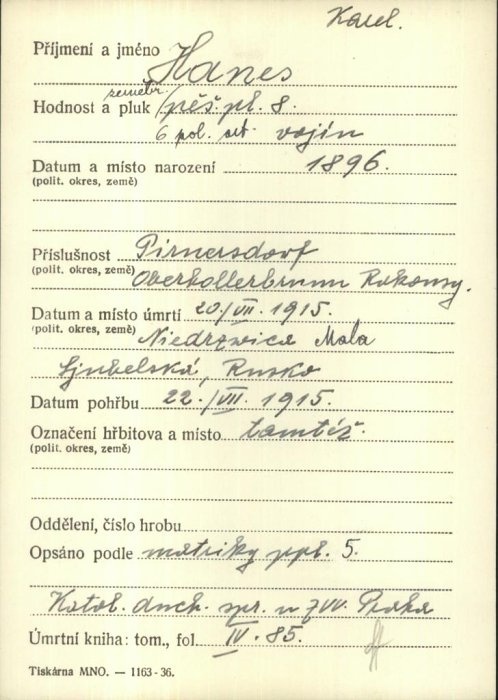 Karel.
Příjmení a jméno Hanes
zeměbr.
Hodnost a pluk pěš. pl. 8.
6 pol. set. vojín
Datum a místo narození 1896.
(polit. okres, země)
Příslušnost Pirnersdorf
(polit. okres, země) Oberhollerbrunn Rakousy.
Datum a místo úmrtí 20./VII. 1915.
(polit. okres, země) Niedrzwica Mala
Ljubelská, Rusko
Datum pohřbu 22./VII. 1915.
Označení hřbitova a místo tamtéž.
(polit. okres, země)
Oddělení, číslo hrobu
Opsáno podle matriky ppl. 5.
Katol. duch. spr. u ZVV. Praha
Úmrtní kniha: tom., fol. IV. 85.
Tiskárna MNO. — 1163-36.